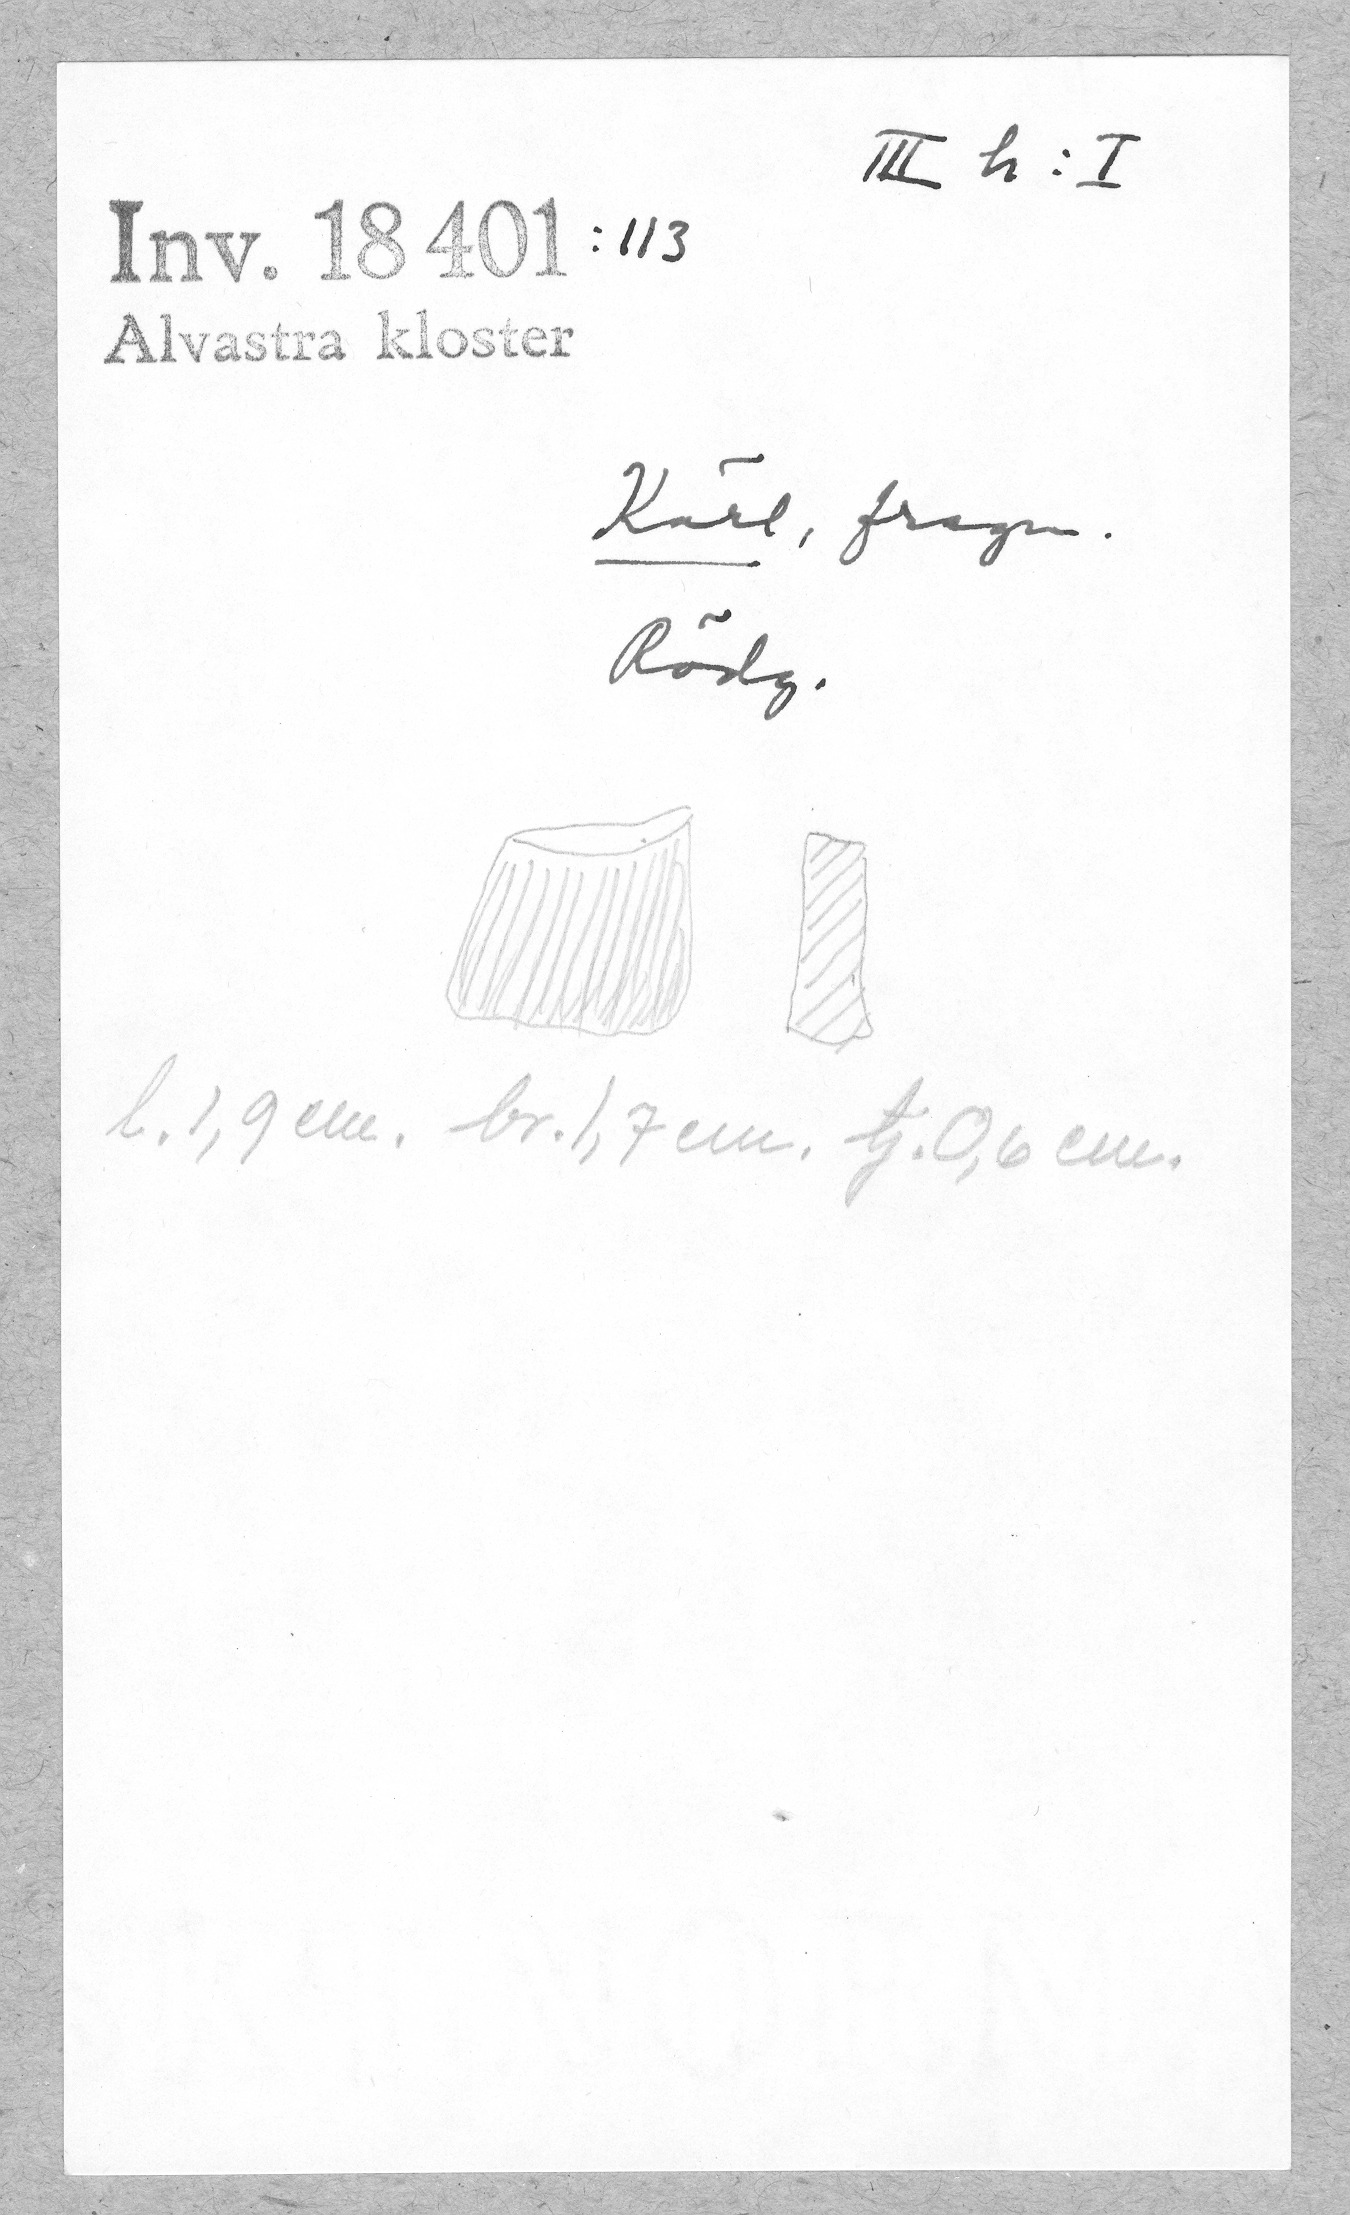 III h : I
Inv. 18 401 : 113
Alvastra kloster
Kärl, fragm.
Rödg.
l. 1,9 cm. br. 1,7 cm. tj. 0,6 cm.